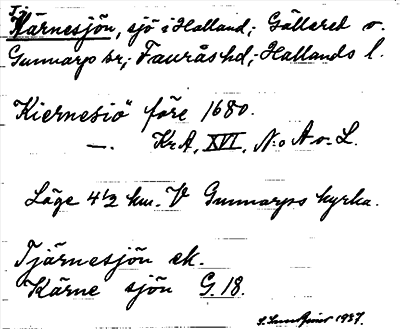 Tj
Kärnesjön, sjö i Halland; Gällared o.
Gunnarp sr; Faurås hd; Hallands l.
Kiernesiö före 1680.
—. KrA, XVI, N:o A o L.
Läge 4 1/2 km. V Gunnarps kyrka.
Tjärnesjön ek.
Kärne sjön G. 18.
1937.